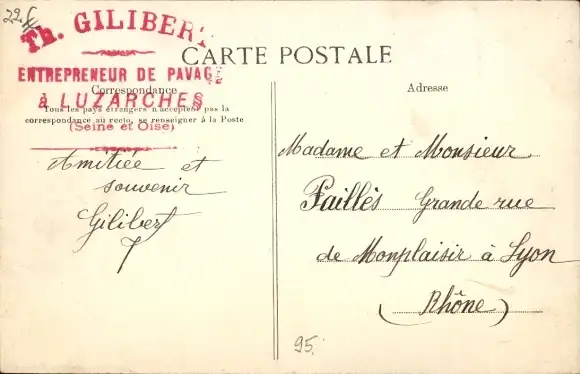 22 f
Th. GILIBERT
CARTE POSTALE
ENTREPRENEUR DE PAVAGE
Correspondance
à LUZARCHES
Tous les pays étrangers n'acceptent pas la
correspondance au recto, se renseigner à la Poste
(Seine et Oise)
Amitiée et
souvenir
Gilibert
Adresse
Madame et Monsieur
Faillès Grande rue
de Monplaisir à Lyon
(Rhône)
95.